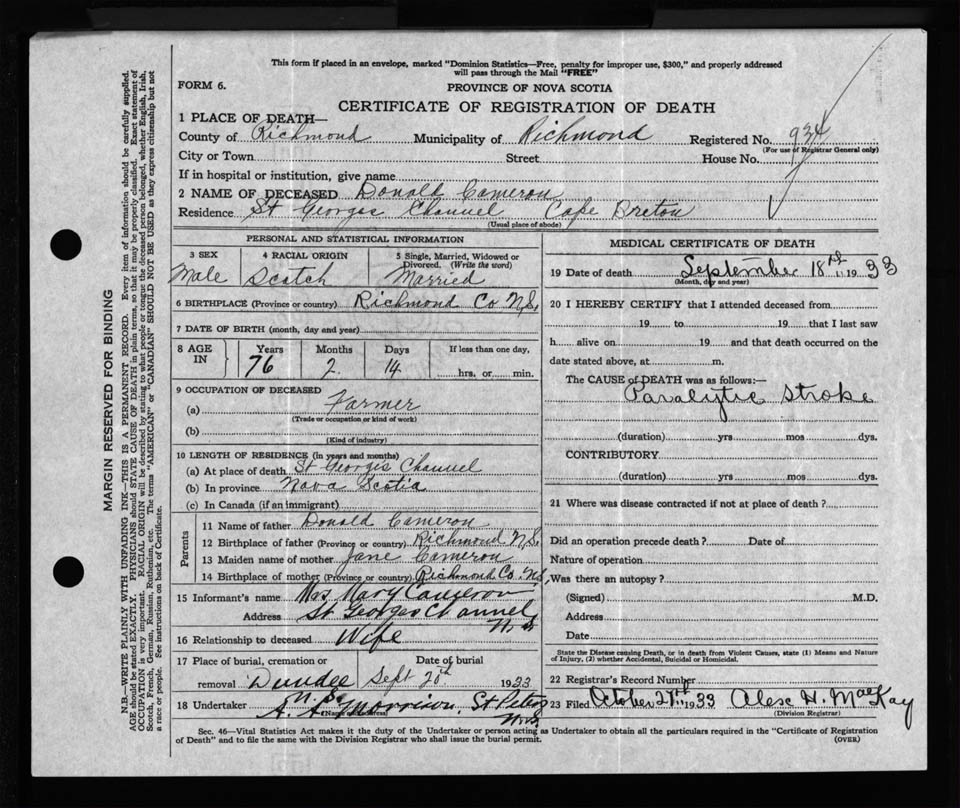 This form if placed in an envelope, marked "Dominion Statistics—Free, penalty for improper use, $300," and properly addressed
will pass through the Mail "FREE"
FORM 6.
PROVINCE OF NOVA SCOTIA
CERTIFICATE OF REGISTRATION OF DEATH
1 PLACE OF DEATH—
County of Richmond Municipality of Richmond Registered No. 934
(For use of Registrar General only)
City or Town Street House No.
If in hospital or institution, give name
2 NAME OF DECEASED Donald Cameron
Residence St Georges Channel Cape Breton
(Usual place of abode)
PERSONAL AND STATISTICAL INFORMATION
3 SEX 4 RACIAL ORIGIN 5 Single, Married, Widowed or
Divorced. (Write the word)
Male Scotch Married
6 BIRTHPLACE (Province or country) Richmond Co N.S.
7 DATE OF BIRTH (month, day and year)
8 AGE IN Years Months Days If less than one day,
76 2 14 hrs. or min.
9 OCCUPATION OF DECEASED
(a) Farmer
(Trade or occupation or kind of work)
(b)
(Kind of industry)
10 LENGTH OF RESIDENCE (in years and months)
(a) At place of death St Georges Channel
(b) In province Nova Scotia
(c) In Canada (if an immigrant)
Parents
11 Name of father Donald Cameron
12 Birthplace of father (Province or country) Richmond N.S.
13 Maiden name of mother Jane Cameron
14 Birthplace of mother (Province or country) Richmond Co. N.S.
15 Informant's name Mrs Mary Cameron
Address St Georges Channel
N.S.
16 Relationship to deceased Wife
17 Place of burial, cremation or Date of burial
removal Dundee Sept 20th 1933
18 Undertaker Morrison, St Peters
(Name and address) N.S.
MEDICAL CERTIFICATE OF DEATH
19 Date of death September 18th 1933
(Month, day and year)
20 I HEREBY CERTIFY that I attended deceased from
19 to 19 that I last saw
h alive on 19 and that death occurred on the
date stated above, at m.
The CAUSE of DEATH was as follows:—
Paralytic Stroke
(duration) yrs mos dys.
CONTRIBUTORY
(duration) yrs mos dys.
21 Where was disease contracted if not at place of death?
Did an operation precede death? Date of
Nature of operation
Was there an autopsy?
(Signed) M.D.
Address
Date
State the Disease causing Death, or in death from Violent Causes, state (1) Means and Nature
of Injury, (2) whether Accidental, Suicidal or Homicidal.
22 Registrar's Record Number
23 Filed October 27th 1933 Alex H. MacKay
(Division Registrar)
Sec. 46—Vital Statistics Act makes it the duty of the Undertaker or person acting as Undertaker to obtain all the particulars required in the "Certificate of Registration
of Death" and to file the same with the Division Registrar who shall issue the burial permit. (OVER)
MARGIN RESERVED FOR BINDING
N.B.—WRITE PLAINLY WITH UNFADING INK—THIS IS A PERMANENT RECORD. Every item of information should be carefully supplied.
AGE should be stated EXACTLY. PHYSICIANS should STATE CAUSE OF DEATH in plain terms, so that it may be properly classified. Exact statement of
OCCUPATION is very important. RACIAL ORIGIN will be described by stating to what people or tongue the deceased person belonged, whether English, Irish,
Scotch, French, German, Russian, Ruthenian, etc. The terms "AMERICAN" or "CANADIAN" SHOULD NOT BE USED as they express citizenship but not
a race or people. See instructions on back of Certificate.